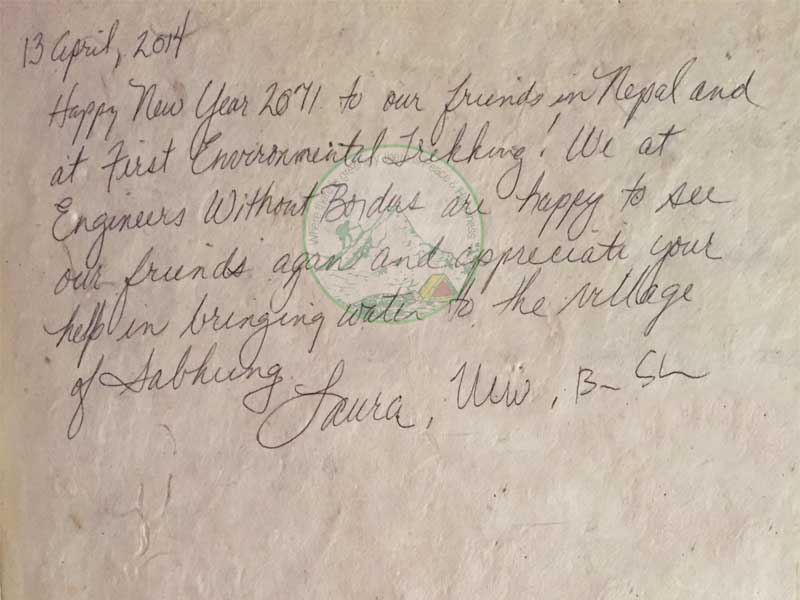 13 April, 2014
Happy New Year 2071 to our friends in Nepal and
at First Environmental Trekking! We at
Engineers Without Borders are happy to see
our friends again and appreciate your
help in bringing water to the village
of Sabhung.
Laura,